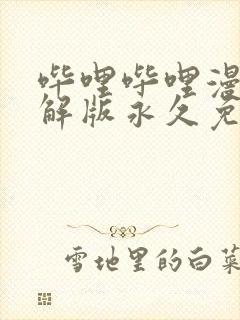 哔哩哔哩漫
解版永久免
雪地里的白菜